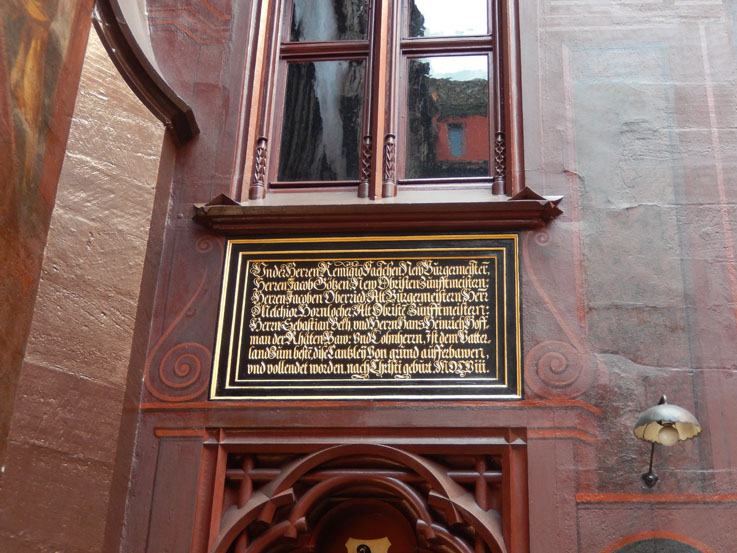 Vnder Herren Remigio Faeschen New Burgermeister,
Herren Jacob Götzen New Obristen Zunfftmeistern:
Herren Jacoben Oberried Alt Burgermeistern: Herr
Melchior Hornlocher Alt Obrist Zunfftmeistern:
Herrn Sebastian Beckh, vnd Herrn Hans Heinrich Hoff,
man der Rhäten Baw: vnd Lohnherrn, Ist dem Vatter,
land Zum besten dise Cantzley Von grund aufferbawen,
vnd vollendet worden, nach Christi gebürt